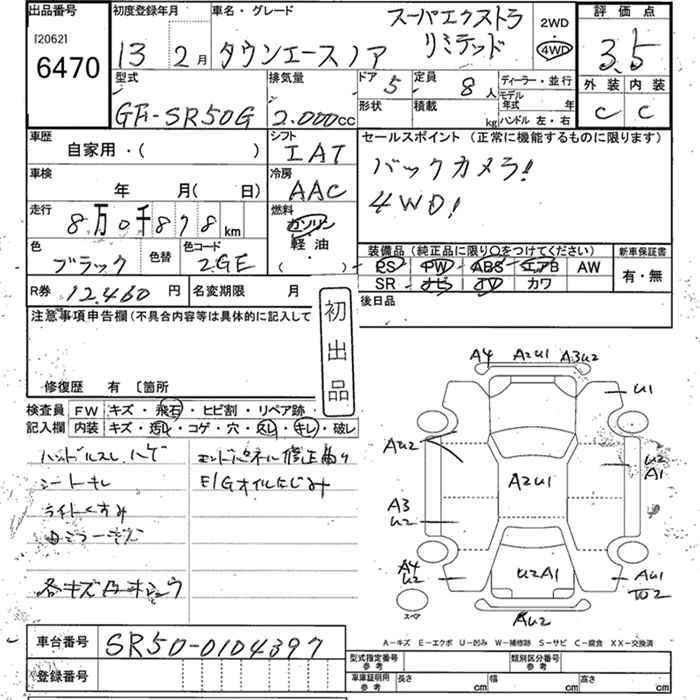 出品番号 初度登録年月 車名・グレード スーパーエクストラ 2WD 評価点
[20621
6470 13 2月 タウンエースノア リミテッド ・ 4WD 3.5
型式 排気量 ドア 5 定員 8人 ディーラー・並行 外装 内装
GF-SR50G 2.000cc 形状 積載 kg モデル年式 年 C C
ハンドル 左・右
車歴 シフト セールスポイント (正常に機能するものに限ります)
自家用・( ) IAT バックカメラ!
車検 冷房
年 月( 日) AAC 4WD!
走行 8万0千878km 燃料 ガソリン
軽油
( )
色 色替 色コード 装備品(純正品に限り○をつけてください) 新車保証書
ブラック 2GE PS PW ABS エアB AW 有・無
SR ナビ TV カワ
R券 12,460円 名変期限 月 後日品
注意事項申告欄(不具合内容等は具体的に記入して
初出品
修復歴 有 〔箇所
検査員 FW キズ・飛石・ヒビ割・リペア跡
記入欄 内装 キズ・汚れ・コゲ・穴・スレ・キレ・破レ
ハンドルスレ、ハゲ
シートキレ
ライトくすみ
エンドパネル修正
E/Gオイルにじみ
各キズ凹
A4 A2U1 A3U2
U1
AU2
U2
A1
A2U1
A3
U2
A4
U2
U2A1
AU1
スペア
AU2
車台番号 SR50-0104397
登録番号
A−キズ E−エクボ U−凹み W−補修跡 S−サビ C−腐食 XX−交換済
型式指定番号 参考 類別区分番号 参考
車庫証明用 参考 長さ cm 幅 cm 高さ cm